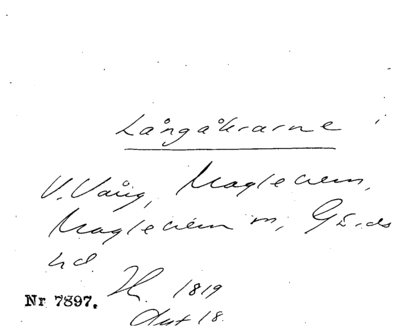 Långåkrarne
V. Vång, Maglehem,
Maglehem sn, Gärds
hd.
Nr 7897. H. 1819
Akt 18.